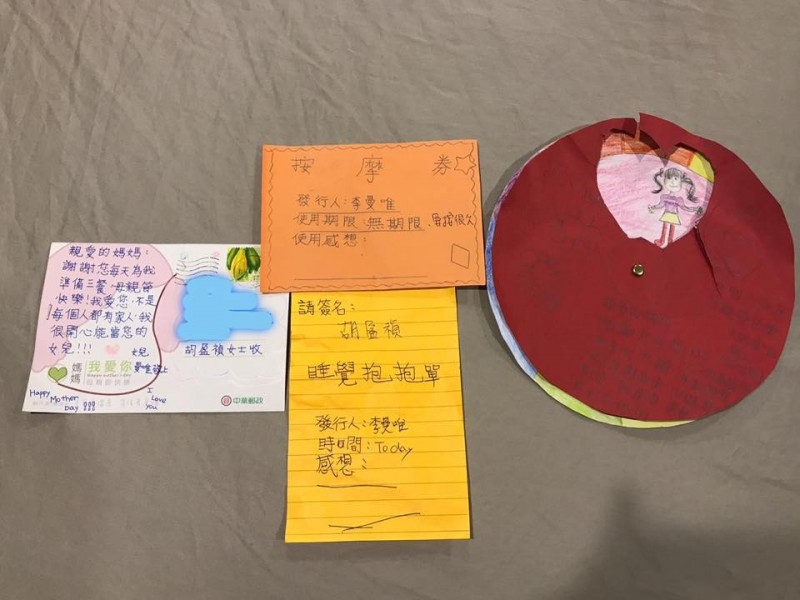 親愛的媽媽:
謝謝您每天為我
準備三餐,母親笛
快樂!我愛您,不是
每個人都有家人,我
很開心能當您的
女兒!!!
女兒
曼唯敬上
媽媽 我愛你
Happy Mother
Day
I
Love
you
胡盈禎女士收
中華郵政
按 摩 券
發行人:李曼唯
使用期限:無期限,要按很久
使用感想:
請簽名:
胡盈禎
睡覺抱抱單
發行人:李曼唯
時間:Today
感想: